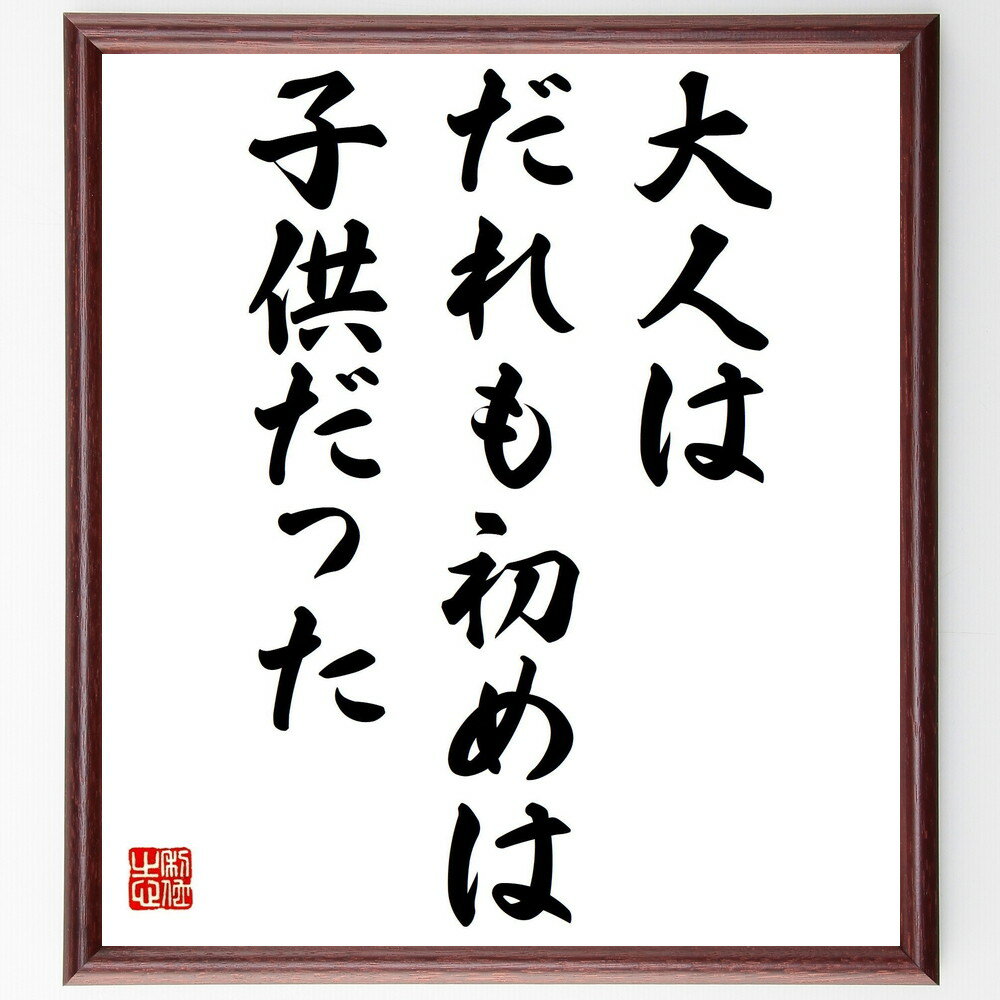 大人は
だれも初めは
子供だった